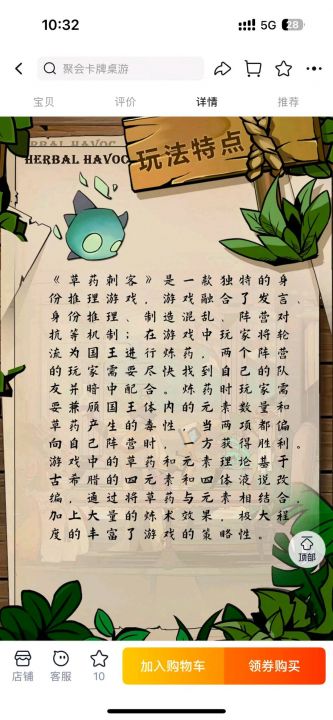 10:32
5G 28
聚会卡牌桌游
宝贝 评价 详情 推荐
HERBAL HAVOC
HERBAL HAVOC
玩法特点
《草药刺客》是一款独特的身
份推理游戏，游戏融合了发言、
身份推理、制造混乱、阵营对
抗等机制；在游戏中玩家将轮
流为国王进行炼药，两个阵营
的玩家需要尽快找到自己的队
友并暗中配合。炼药时玩家需
要兼顾国王体内的元素数量和
草药产生的毒性，当两项都偏
向自己阵营时，一方获得胜利。
游戏中的草药和元素理论基于
古希腊的四元素和四体液说改
编，通过将草药与元素相结合，
加上大量的炼术效果，极大程
度的丰富了游戏的策略性。
顶部
店铺 客服 10 加入购物车 领券购买